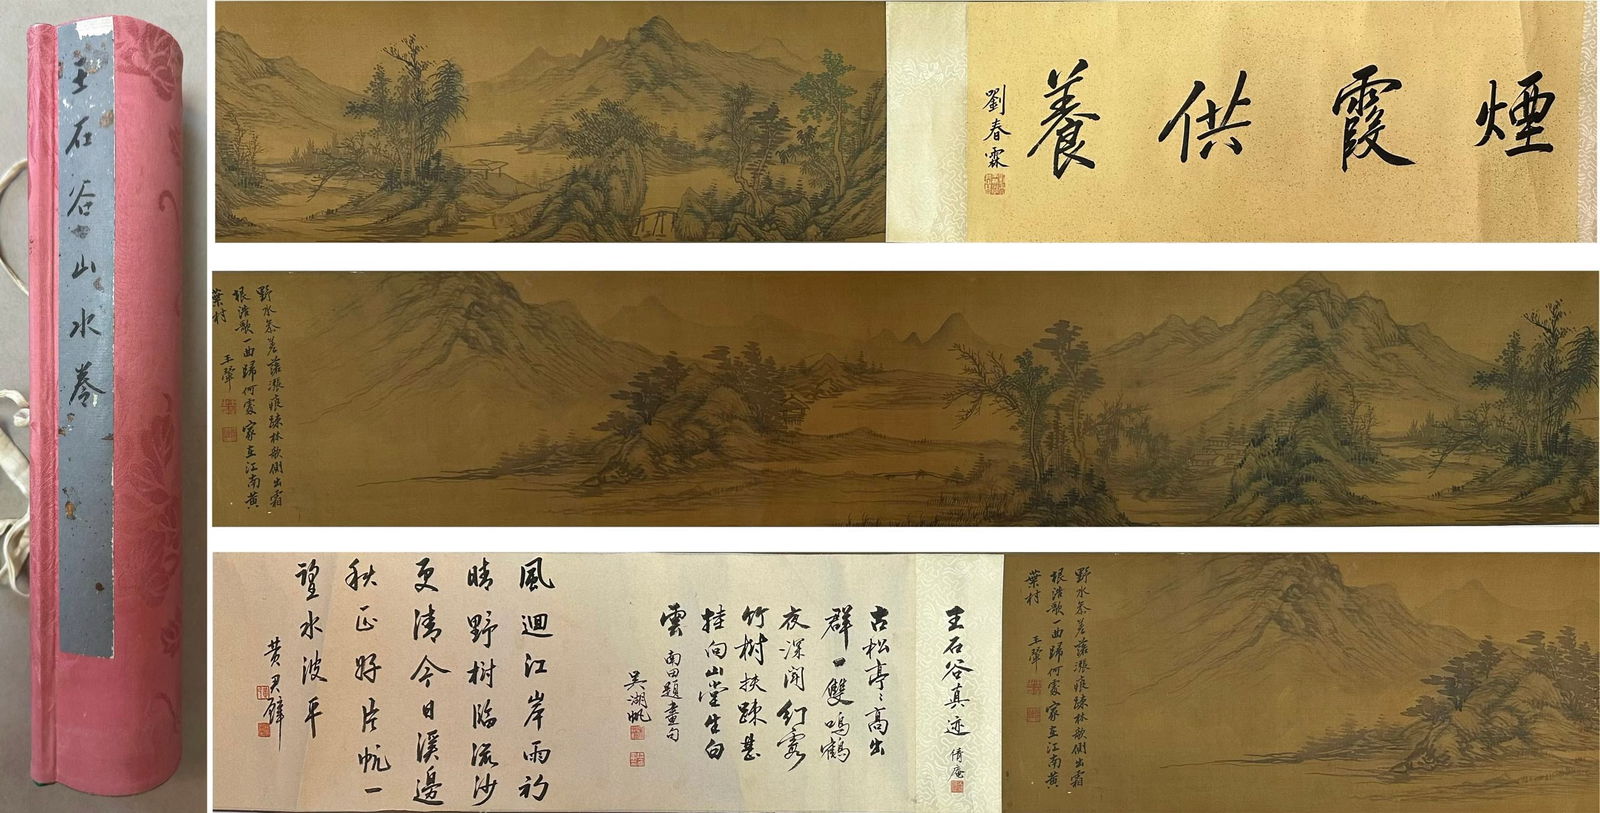 王石谷山水卷
煙霞供養
劉春霖
野水參差落漲痕疎林欹側出霜
根浩歌一曲歸何處家在江南黃
葉村
王翬
野水參差落漲痕疎林欹側出霜
根浩歌一曲歸何處家在江南黃
葉村
王翬
王石谷真迹
倩庵
古松亭〻高出
群一雙鳴鶴
夜深聞幻霧
竹樹扶疎甚
挂向山堂生白
雲
南田題畫句
吳湖帆
風迴江岸雨初
晴野樹臨流沙
更清今日溪邊
秋正好片帆一
望水波平
黃君璧